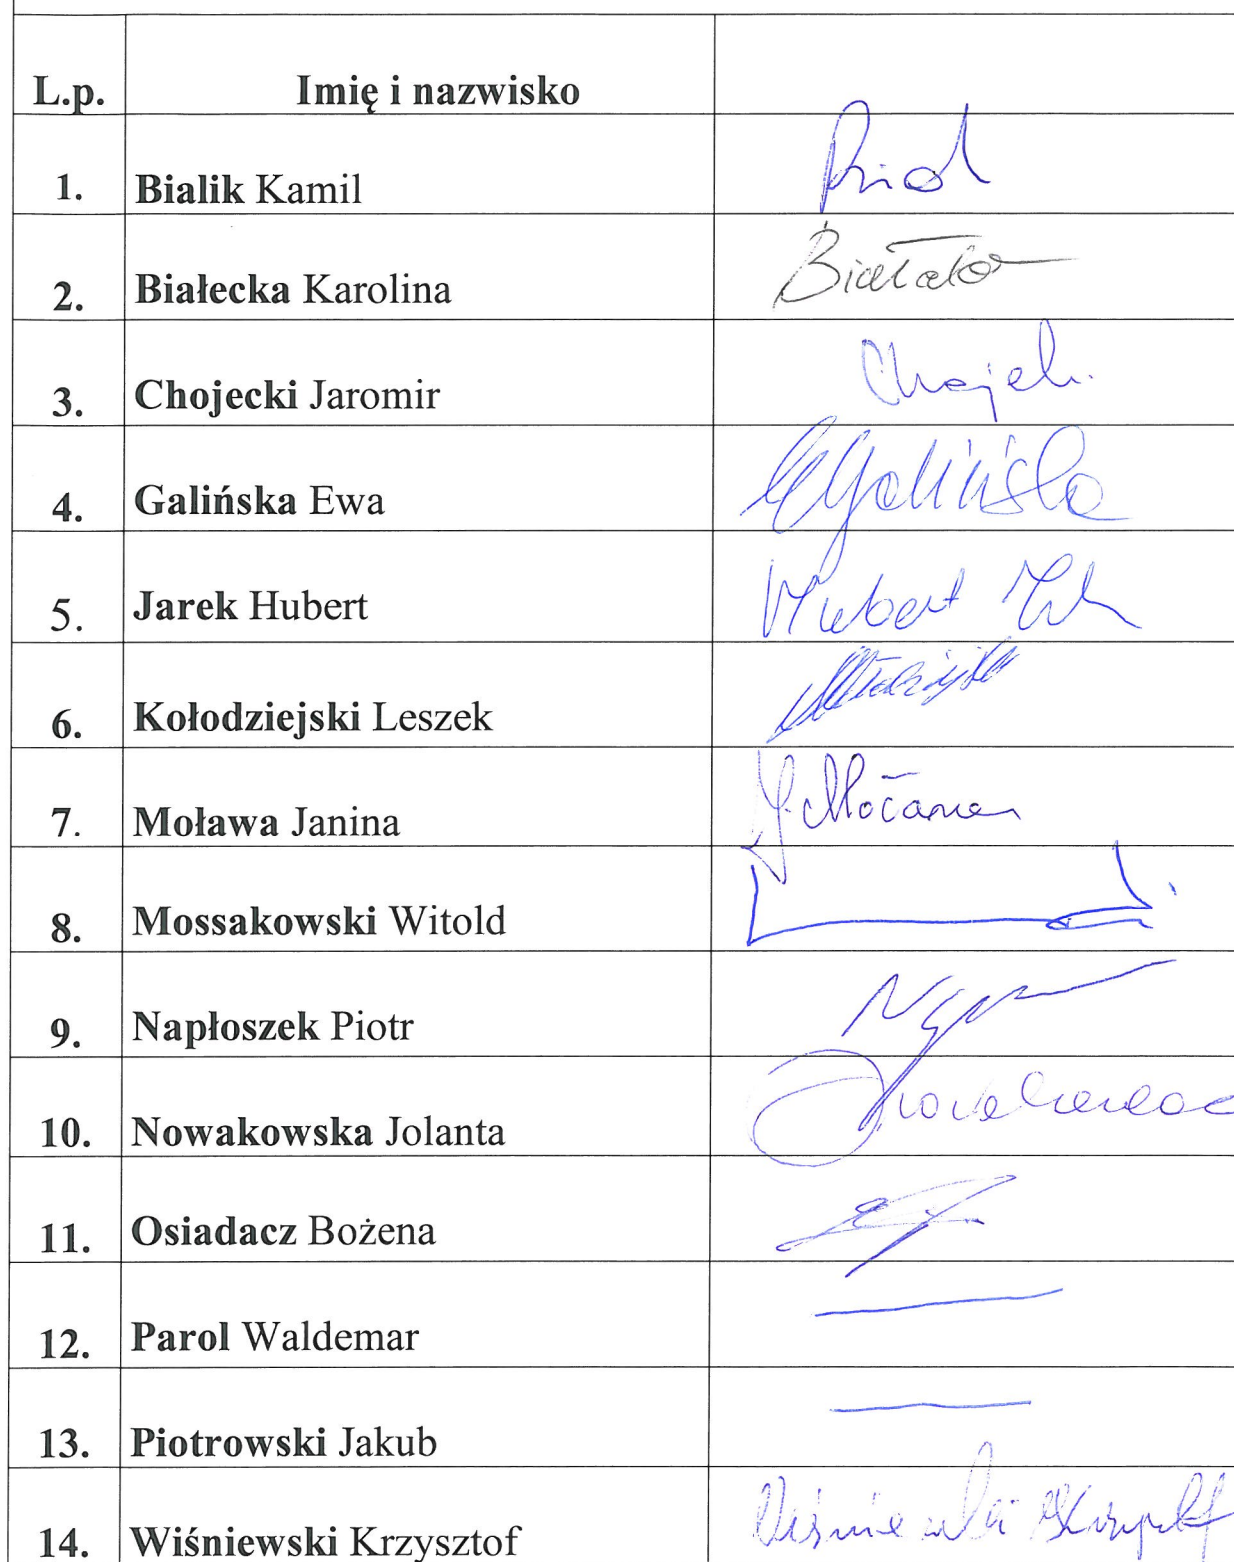 L.p. Imię i nazwisko
1. Bialik Kamil
2. Białecka Karolina
3. Chojecki Jaromir
4. Galińska Ewa EGalińska
5. Jarek Hubert Hubert
6. Kołodziejski Leszek
7. Moława Janina
8. Mossakowski Witold
9. Napłoszek Piotr
10. Nowakowska Jolanta
11. Osiadacz Bożena
12. Parol Waldemar
13. Piotrowski Jakub
14. Wiśniewski Krzysztof Wiśniewski Krzysztof